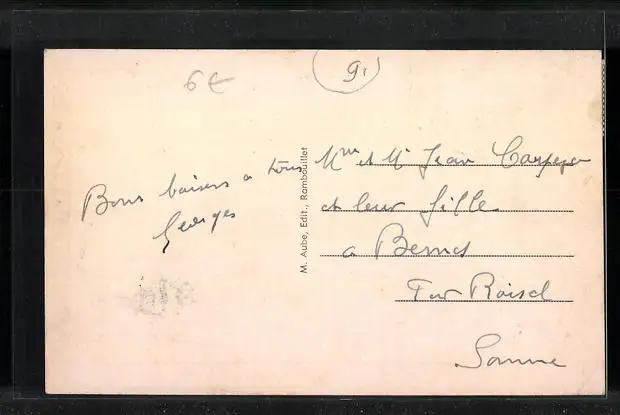 6€
91
Bons baisers a tous
Georges
M. Aube, Edit., Rambouillet
Mme et Mr Jean
et leur fille
a Bernes
Par Roisel
Somme